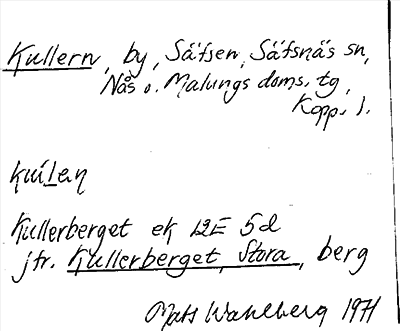 Kullern, by, Säfsen, Säfsnäs sn,
Nås o. Malungs doms. tg,
Kopp. l.
Kullerberget ek 12E 5d
jfr. Kullerberget, Stora, berg
Mats Wahlberg 1971